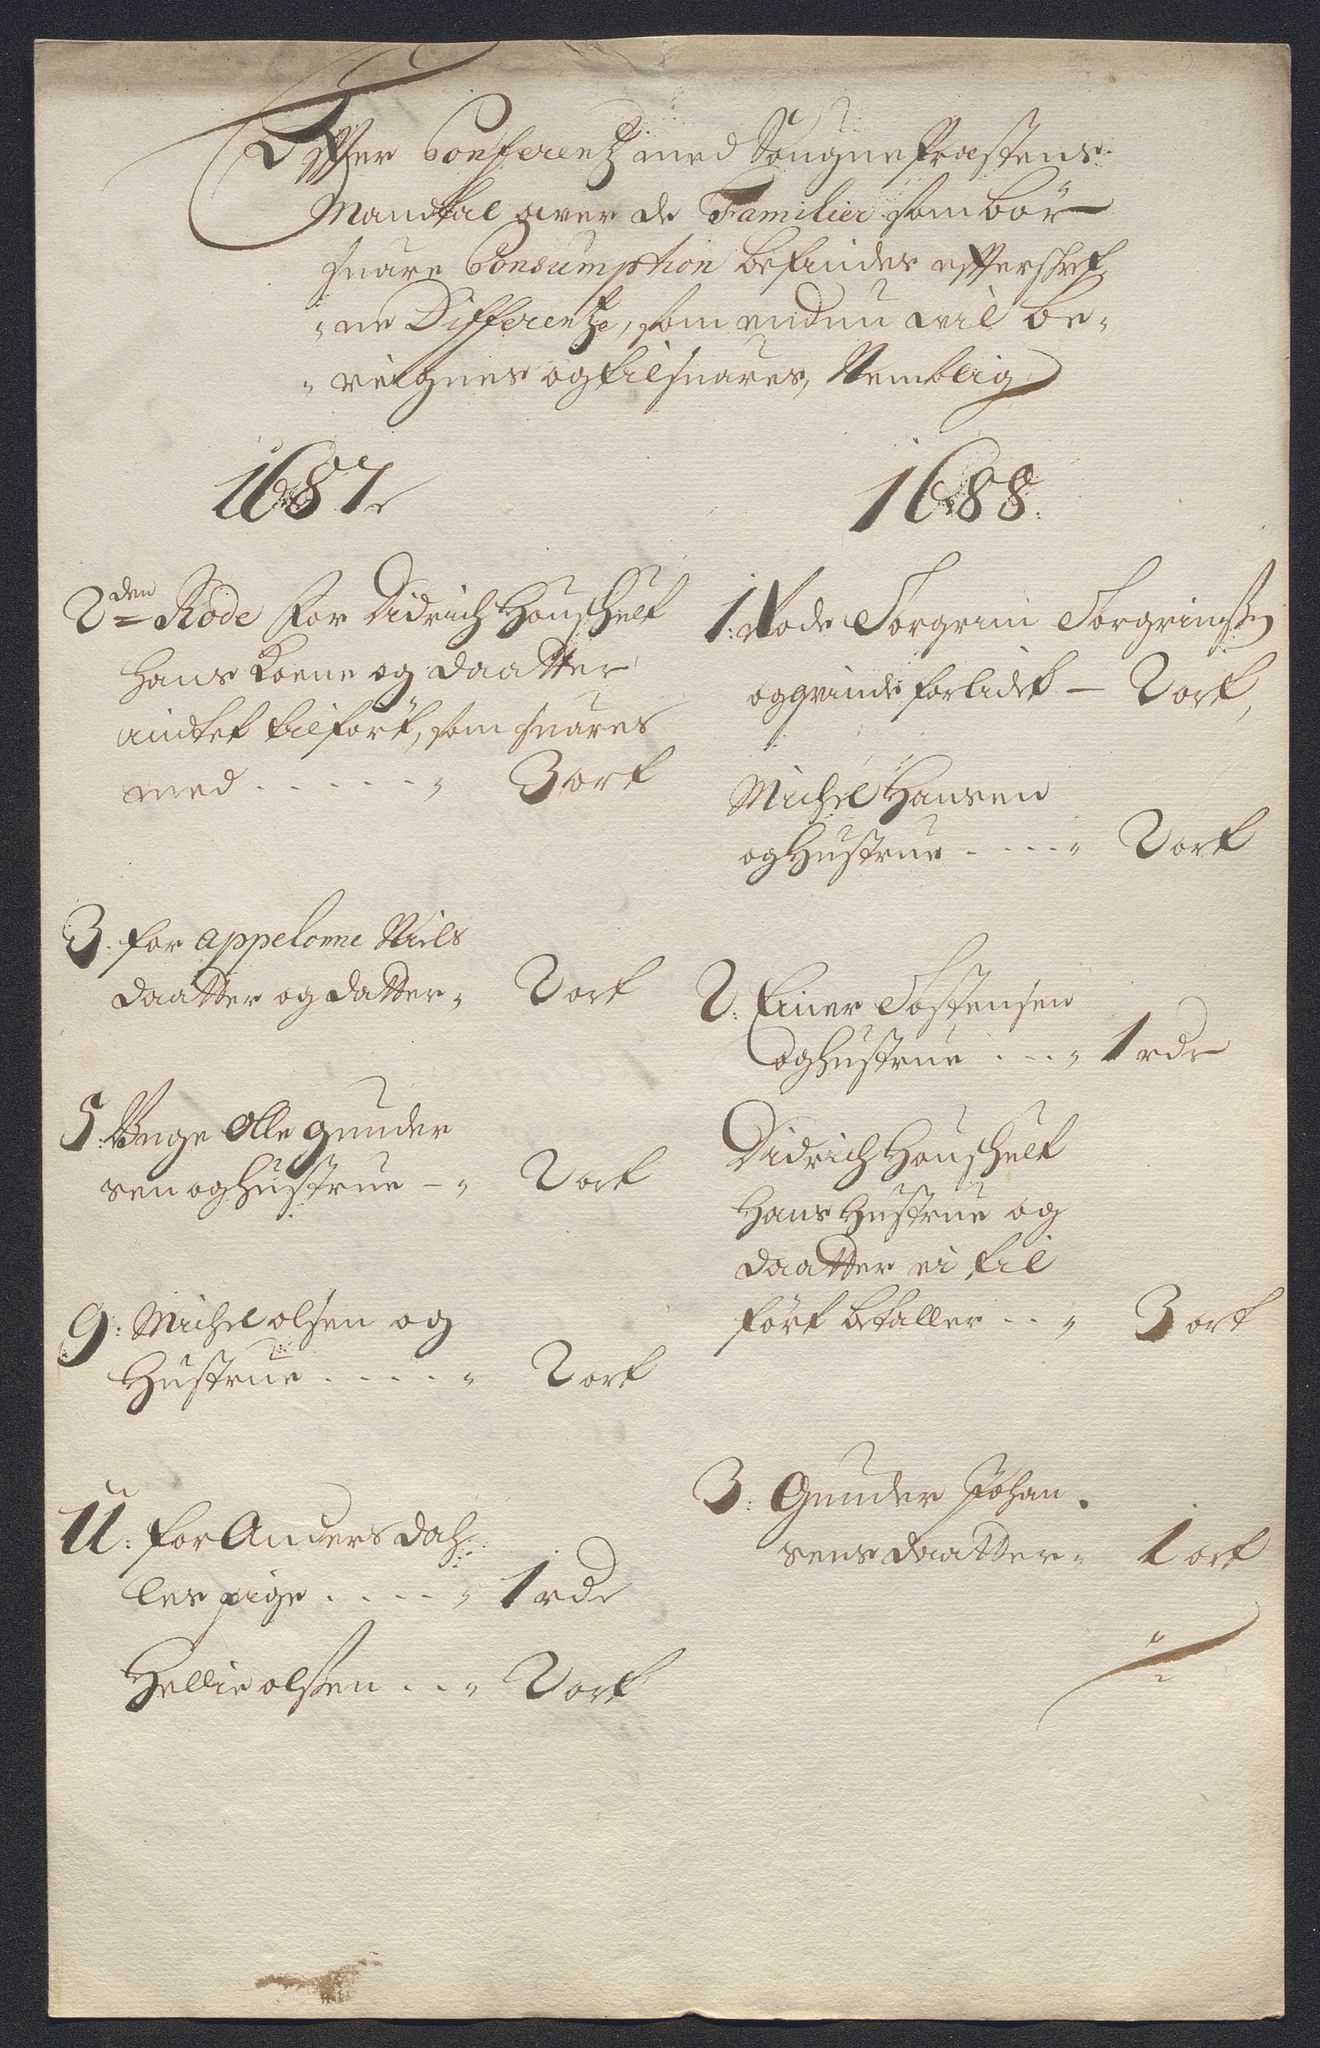 Effter Conferentz med Sougne Præstens
Mandtal over de Familier som bör
svare Consumption befindes effterschref
ne Differentze, som endnu vil be-
reignes og tilsvares, Nemblig
1687
2den Rode for Didrich Houschelt
hans Kone og daatter
intet tilfört, som svares
med ..... 3 ort
3. for appelone Niels
daatter og datter 2 ort
5. Unge Olle gunder
sen og hustrue - 2 ort
9: Michel olsen og
Hustrue .... 2 ort
11: for Anders dah-
les pige .... 1 rdr
Hellie olsen .. 2 ort
1688.
1: Rode Torgrim Torgrimsen
og qvinde forlidet - 2 ort,
Michel Hansen
og Hustrue .... 2 ort
2: Einer Tostensen
og hustrue ... 1 rdr
Didrich Houschelt
Hans Hustrue og
daatter ei til
fört betaller .. 3 ort
3: Gunder Johan
sens daatter 1 ort